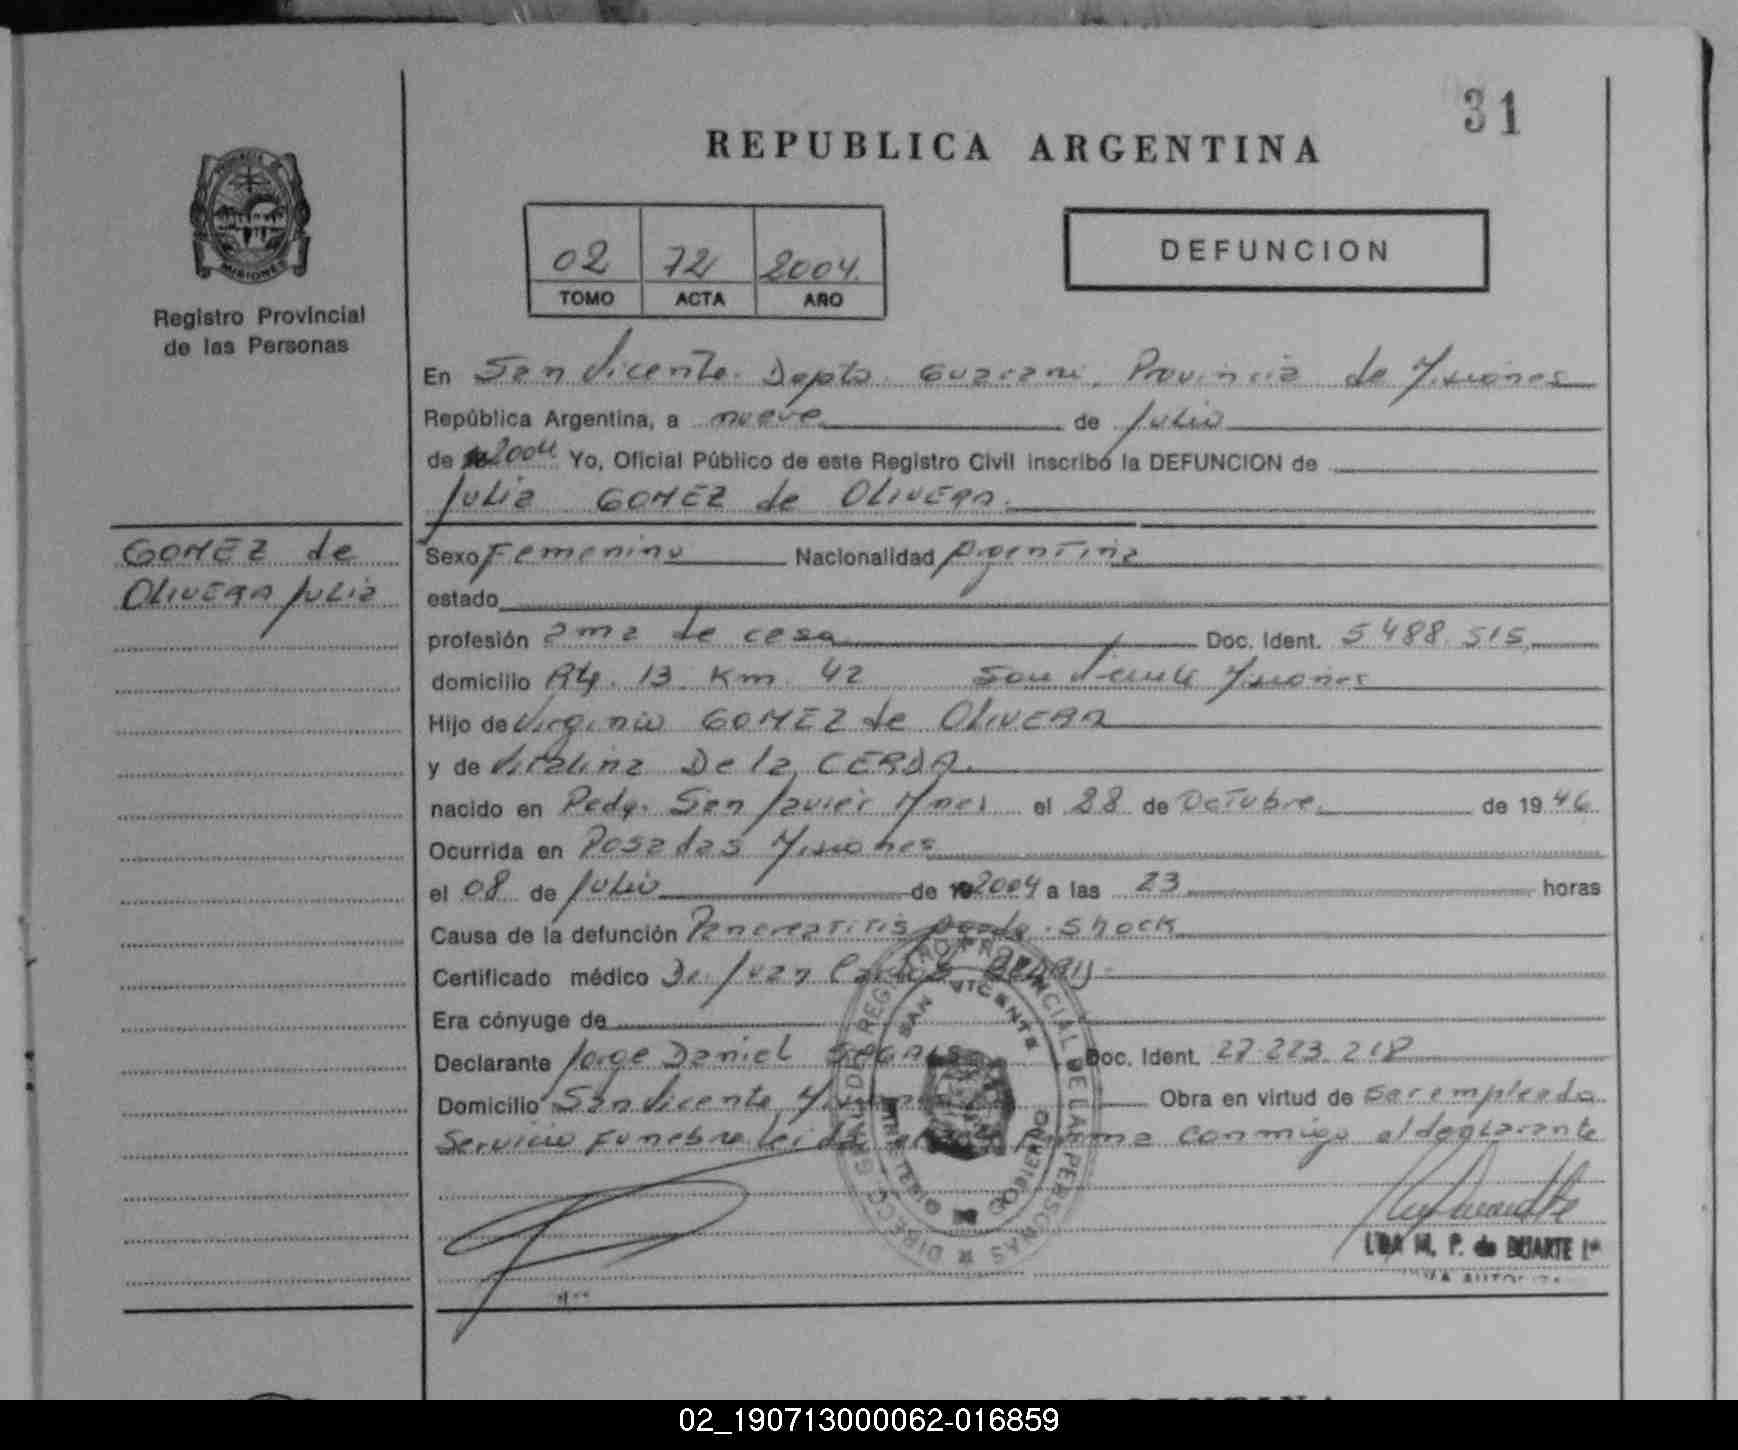 31
REPUBLICA ARGENTINA
02 72 2004
TOMO ACTA AÑO
DEFUNCION
MISIONES
Registro Provincial
de las Personas
En San Vicente Depto. Guarani, Provincia de Misiones
República Argentina, a nueve de Julio
de 2004 Yo, Oficial Público de este Registro Civil inscribo la DEFUNCION de
Julia GOMEZ de OLIVERA.
GOMEZ de
OLIVERA Julia
Sexo Femenino Nacionalidad Argentina
estado
profesión ama de casa Doc. Ident. 5488.515
domicilio Km. 42 San Vicente Misiones
Hijo de Virginio GOMEZ de OLIVERA
y de Vitalina De la CERDA.
nacido en San Javier Mnes el 28 de Octubre de 1946
Ocurrida en Posadas Misiones
el 08 de Julio de 2004 a las 23 horas
Causa de la defunción Pancreatitis Shock
Certificado médico Dr. Juan Carlos
Era cónyuge de
Declarante Jorge Daniel Doc. Ident. 27.223.218
Domicilio San Vicente, Obra en virtud de ser empleado
Servicio Funebre leida firma conmigo el declarante
DIRECC. GRAL. DE REGISTRO PROVINCIAL DE LAS PERSONAS
SAN VICENTE
MINISTERIO GOBIERNO
M. P. de DUARTE
02_190713000062-016859